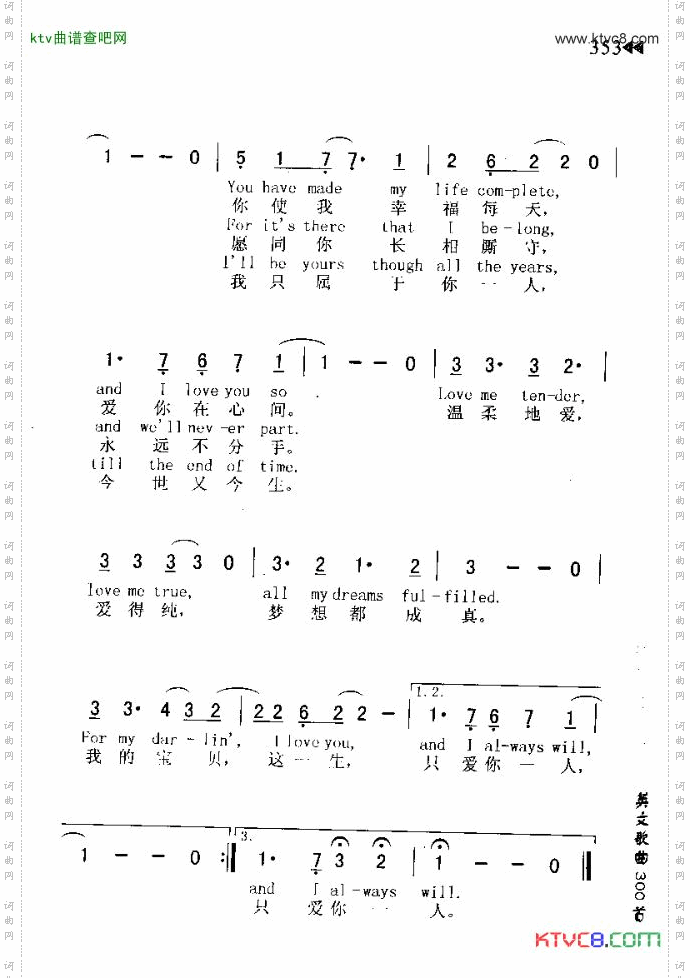 ktv曲谱查吧网
www.ktvc8.com
353
1 - - 0 | 5 1 7 7· 1 | 2 6 2 2 0 |
You have made my life complete,
你使我幸福每天,
For it's there that I be-long,
愿同你长相厮守,
I'll be yours though all the years,
我只属于你一人,
1· 7 6 7 1 | 1 - - 0 | 3 3· 3 2· |
and I love you so Love me ten-der,
爱你在心间。 温柔地爱,
and we'll nev-er part.
永远不分手。
till the end of time.
今世又今生。
3 3 3 3 0 | 3· 2 1· 2 | 3 - - 0 |
love me true, all my dreams ful-filled.
爱得纯, 梦想都成真。
1.2.
3 3· 4 3 2 | 2 2 6 2 2 - | 1· 7 6 7 1 |
For my dar-lin', I love you, and I al-ways will,
我的宝贝, 这一生, 只爱你一人,
3.
1 - - 0 :| 1· 7 3 2 | 1 - - 0 ||
and I al-ways will.
只爱你一人。
英文歌曲300首
KTVC8.COM
词曲网